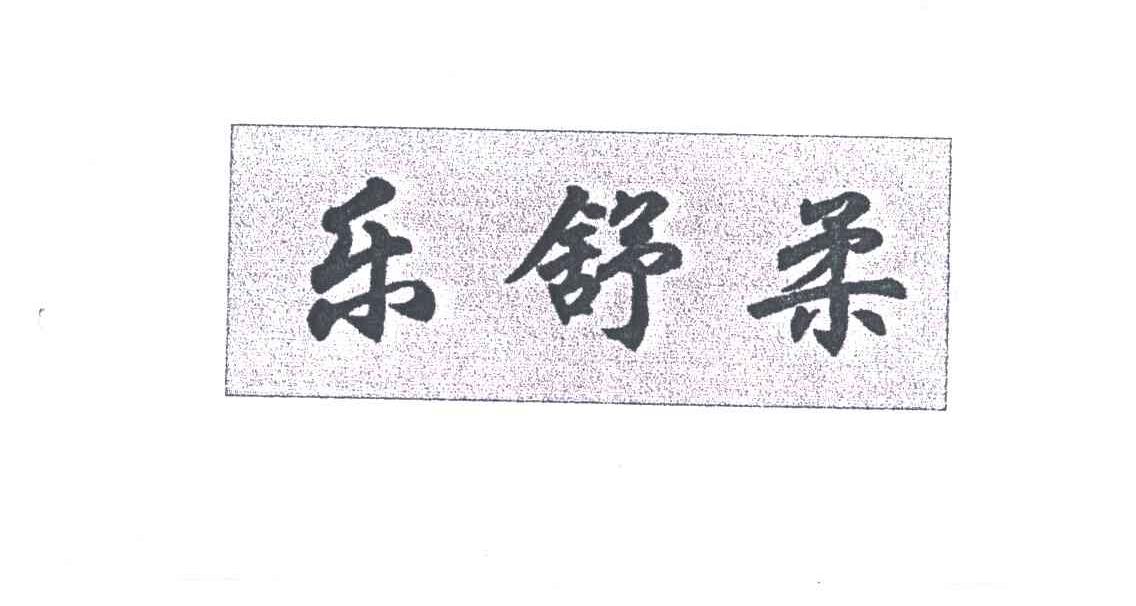 乐舒柔